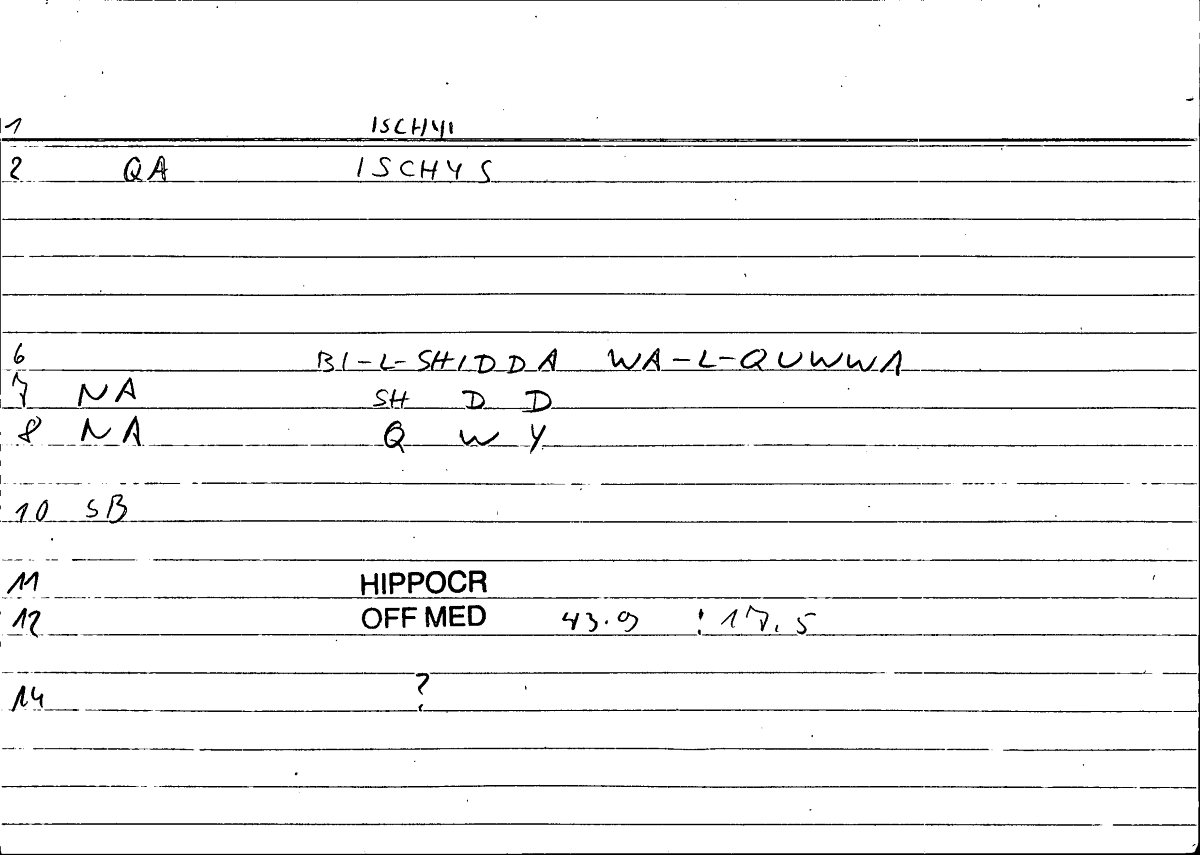 1 ISCHYI
2 QA ISCHYS
6 BI-L-SHIDDA WA-L-QUWWA
7 NA SH D D
8 NA Q W Y
10 SB
11 HIPPOCR
12 OFF MED 43.9 ! 17.5
14 ?